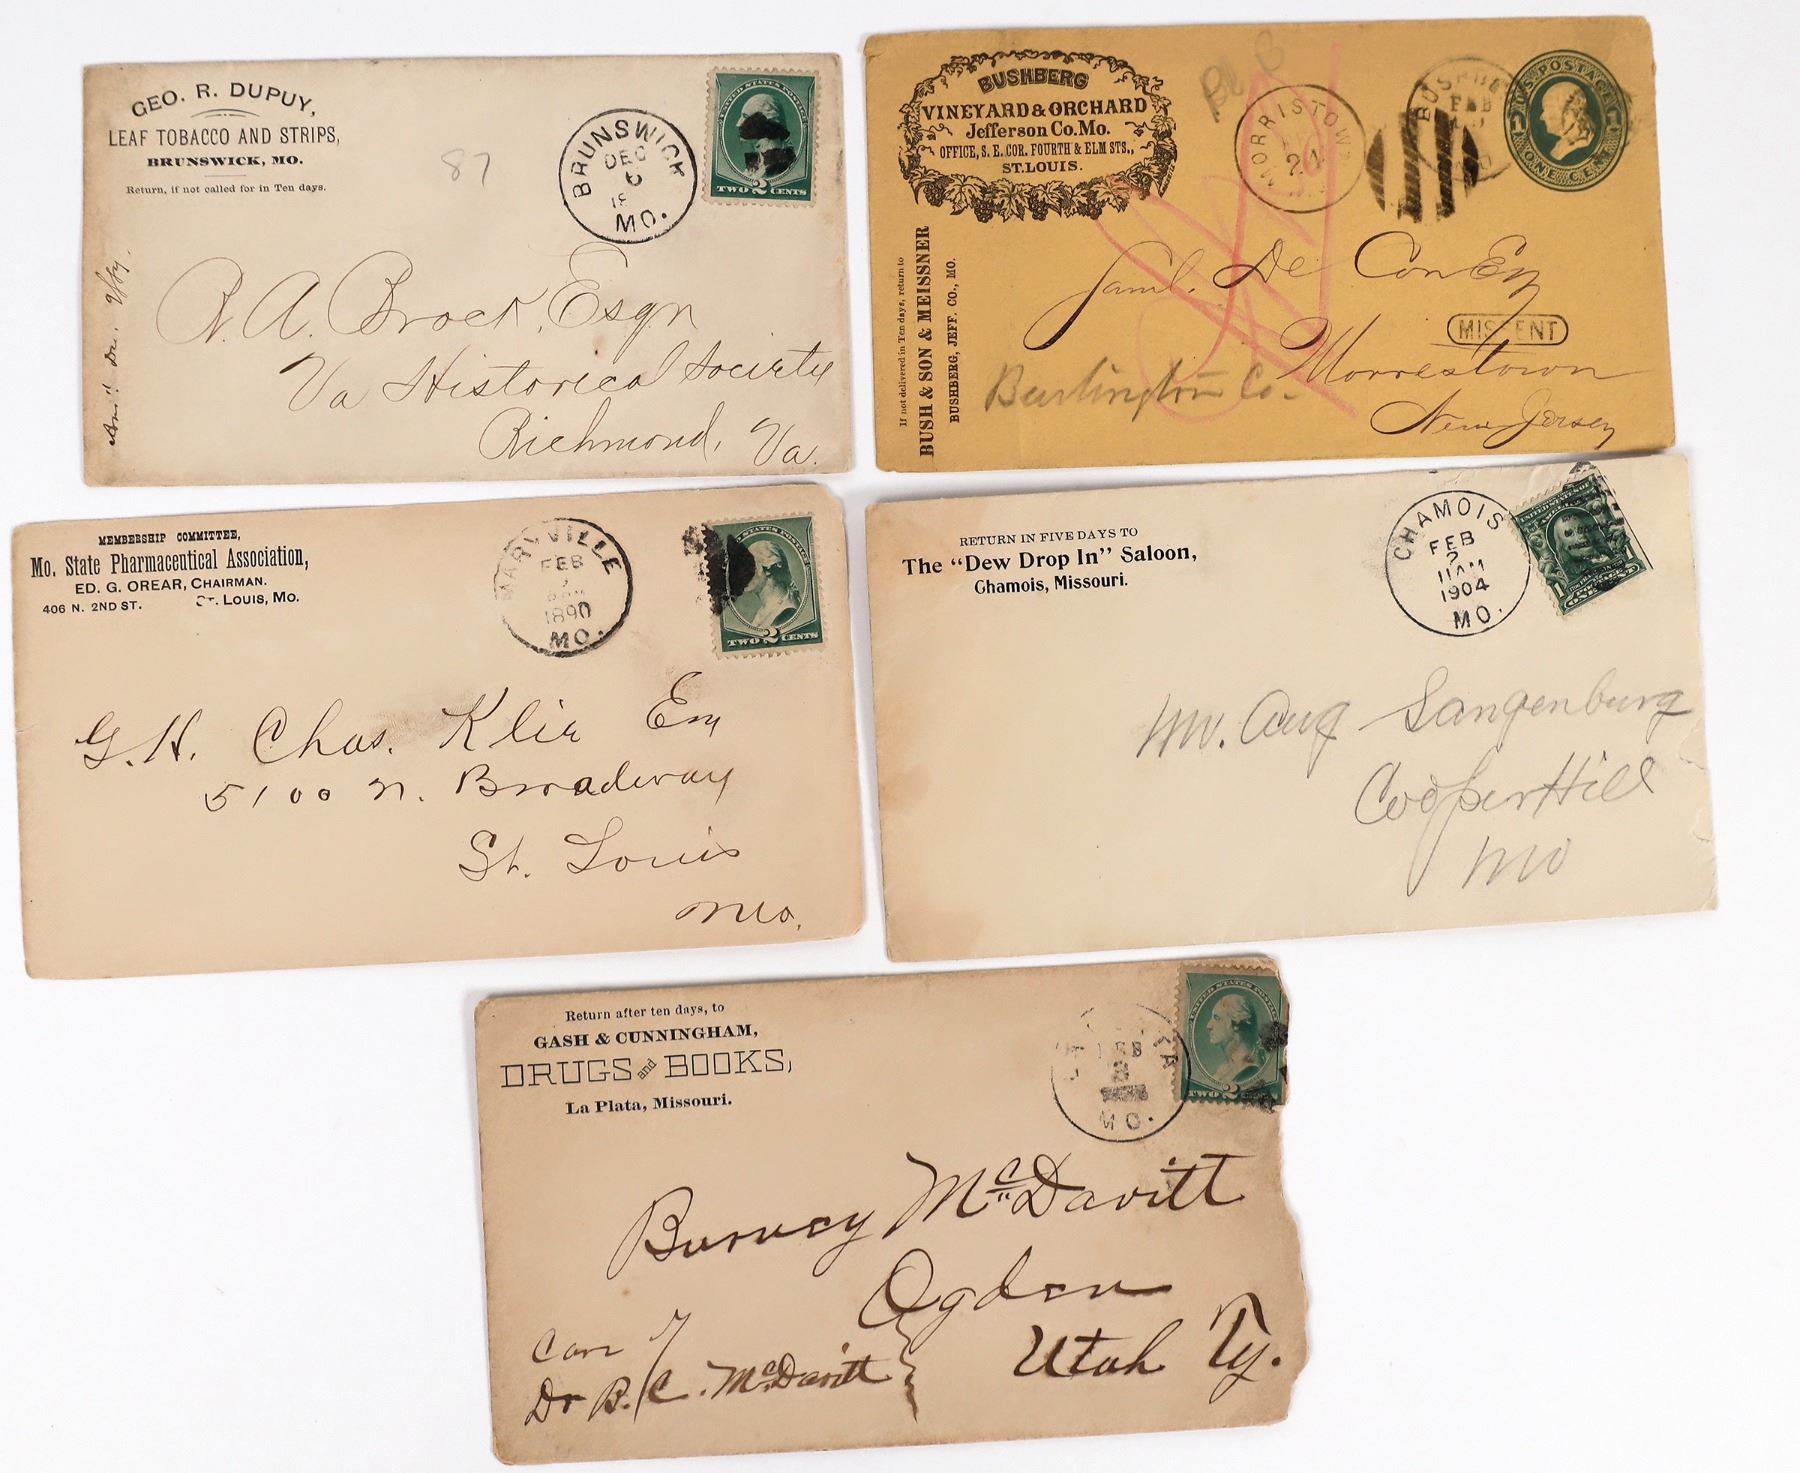 GEO. R. DUPUY,
LEAF TOBACCO AND STRIPS,
BRUNSWICK, MO.
Return, if not called for in Ten days.
87
BRUNSWICK
DEC
MO.
UNITED STATES POSTAGE
TWO 2 CENTS
R. A. Brock, Esqr
Va Historical Society
Richmond, Va.
BUSHBERG
VINEYARD & ORCHARD
Jefferson Co. Mo.
OFFICE, S. E. COR. FOURTH & ELM STS.,
ST. LOUIS.
If not delivered in Ten days, return to
BUSH & SON & MEISSNER
BUSHBERG, JEFF. CO., MO.
MORRISTOWN
21
BUSHBE
FEB
U.S. POSTAGE
1 1
ONE CENT
Saml. De Cou Esq
MISSENT
Morrestown
Burlington Co.
New Jersey
MEMBERSHIP COMMITTEE,
Mo. State Pharmaceutical Association,
ED. G. OREAR, CHAIRMAN.
406 N. 2ND ST. ST. LOUIS, MO.
MARYVILLE
FEB
1890
MO.
UNITED STATES POSTAGE
TWO 2 CENTS
G. H. Chas. Klie Esq
5100 N. Broadway
St. Louis
Mo.
RETURN IN FIVE DAYS TO
The "Dew Drop In" Saloon,
Chamois, Missouri.
CHAMOIS
FEB
2
11AM
1904
MO.
1 1
Mr. Aug Langenburg
Cooper Hill
Mo
Return after ten days, to
GASH & CUNNINGHAM,
DRUGS and BOOKS,
La Plata, Missouri.
FEB
MO.
UNITED STATES POSTAGE
TWO 2 CENTS
Burney McDavitt
Ogden
Utah Ty.
Care of
Dr B. C. McDavitt